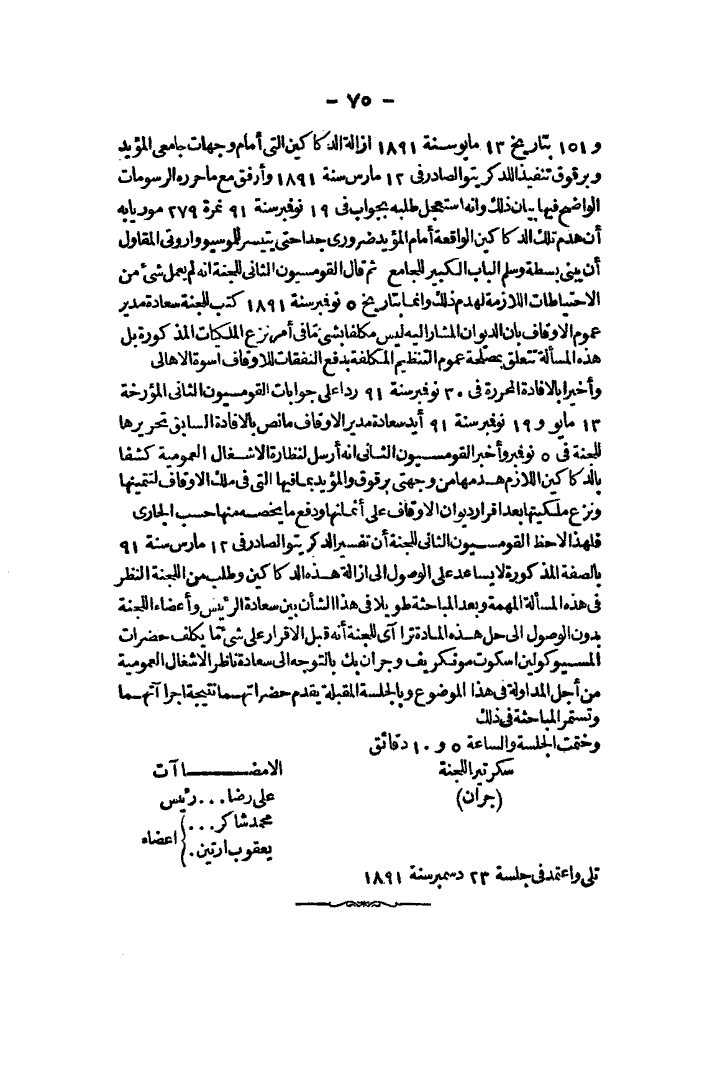 - ٧٥ -
و ١٥١ بتاريخ ١٣ مايوسنة ١٨٩١ ازالة الدكاكين التى أمام وجهات جامعى المؤيد
وبرقوق تنفيذا للدكريتو الصادر فى ١٢ مارس سنة ١٨٩١ وأرفق مع ما حرره الرسومات
الواضح فيها بيان ذلك وانه استعجل طلبه بجواب فى ١٩ نوفبر سنة ٩١ نمرة ٢٧٩ موريا به
أن هدم تلك الدكاكين الواقعة أمام المؤيد ضرورى جدا حتى يتيسر للموسيو واروتى المقاول
أن يبنى بسطة وسلم الباب الكبير للجامع ثم قال القومسيون الثانى للجنة انه لم يعمل شئ من
الاحتياطات اللازمة لهدم ذلك وانما بتاريخ ٥ نوفبر سنة ١٨٩١ كتب للجنة سعادة مدير
عموم الاوقاف بان الديوان المشار اليه ليس مكلفا بشئ مّا فى أمر نزع الملكيات المذكورة بل
هذه المسألة تتعلق بمصلحة عموم التنظيم المكلفة بدفع النفقات للاوقاف اسوة الاهالى
وأخيرا بالافادة المحررة فى ٣٠ نوفبر سنة ٩١ ردا على جوابات القومسيون الثانى المؤرخة
١٣ مايو و ١٩ نوفبر سنة ٩١ أيد سعادة مدير الاوقاف ما نص بالافادة السابق تحريرها
للجنة فى ٥ نوفبر وأخبر القومسيون الثانى انه أرسل لنظارة الاشغال العمومية كشفا
بالدكاكين اللازم هدمها من وجهتى برقوق والمؤيد بما فيها التى فى ملك الاوقاف لتثمينها
ونزع ملكيتها بعد اقرار ديوان الاوقاف على أثمانها ودفع ما يخصه منها حسب الجارى
فلهذا لاحظ القومسيون الثانى للجنة أن تفسير الدكريتو الصادر فى ١٢ مارس سنة ٩١
بالصفة المذكورة لا يساعد على الوصول الى ازالة هذه الدكاكين وطلب من اللجنة النظر
فى هذه المسألة المهمة وبعد المباحثة طويلا فى هذا الشأن بين سعادة الرئيس وأعضاء اللجنة
بدون الوصول الى حل هذه المادة تراآى للجنة أنه قبل الاقرار على شئ مّا يكلف حضرات
المسيو كولين اسكوت مونكريف وجران بك بالتوجه الى سعادة ناظر الاشغال العمومية
من أجل المداولة فى هذا الموضوع وبالجلسة المقبلة يقدم حضراتهما نتيجة اجراآتهما
وتستمر المباحثة فى ذلك
وختمت الجلسة والساعة ٥ و ١٠ دقائق
سكرتير اللجنة الامضاآت
(جران) على رضا ... رئيس
محمد شاكر ... } اعضاء
يعقوب ارتين .
تلى واعتمد فى جلسة ٢٣ دسمبر سنة ١٨٩١